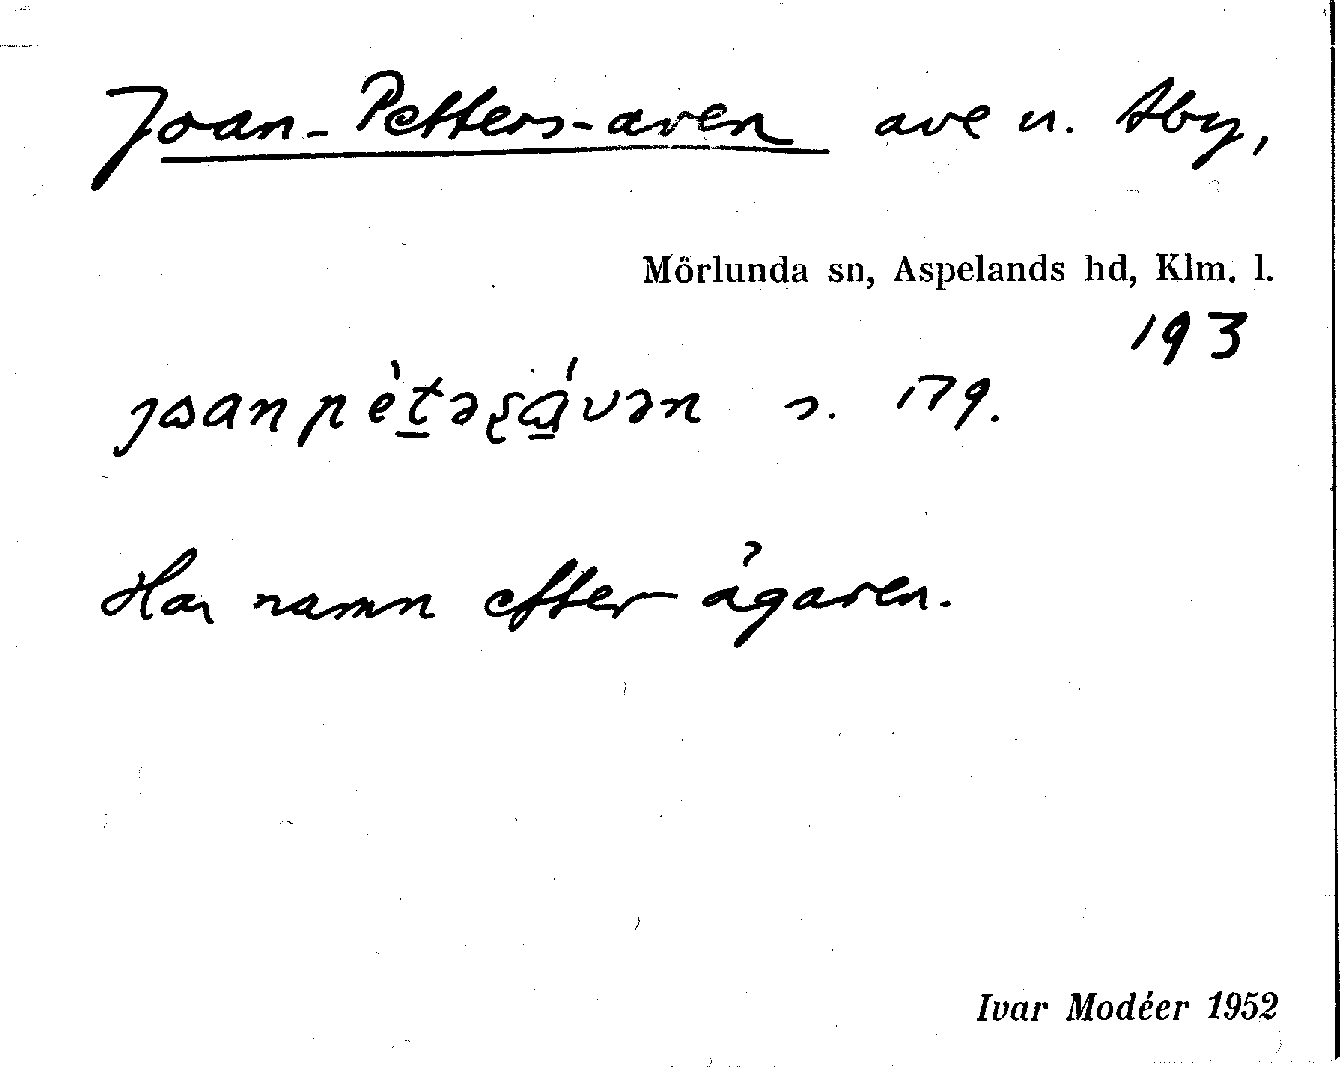 Joan-Petters-aven ave u. Åby,
Mörlunda sn, Aspelands hd, Klm. l.
193
s. 179.
Har namn efter ägaren.
Ivar Modéer 1952